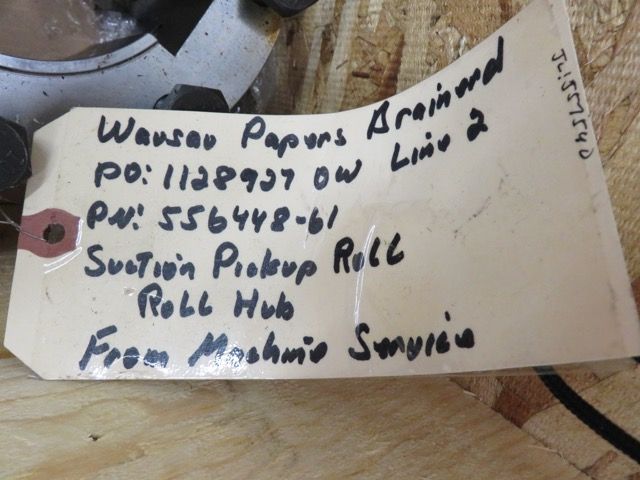 Wausau Papers Brainerd
PO: 1128927 OW Line 2
PN: 556448-61
Suction Pickup Roll
Roll Hub
From Machine Service